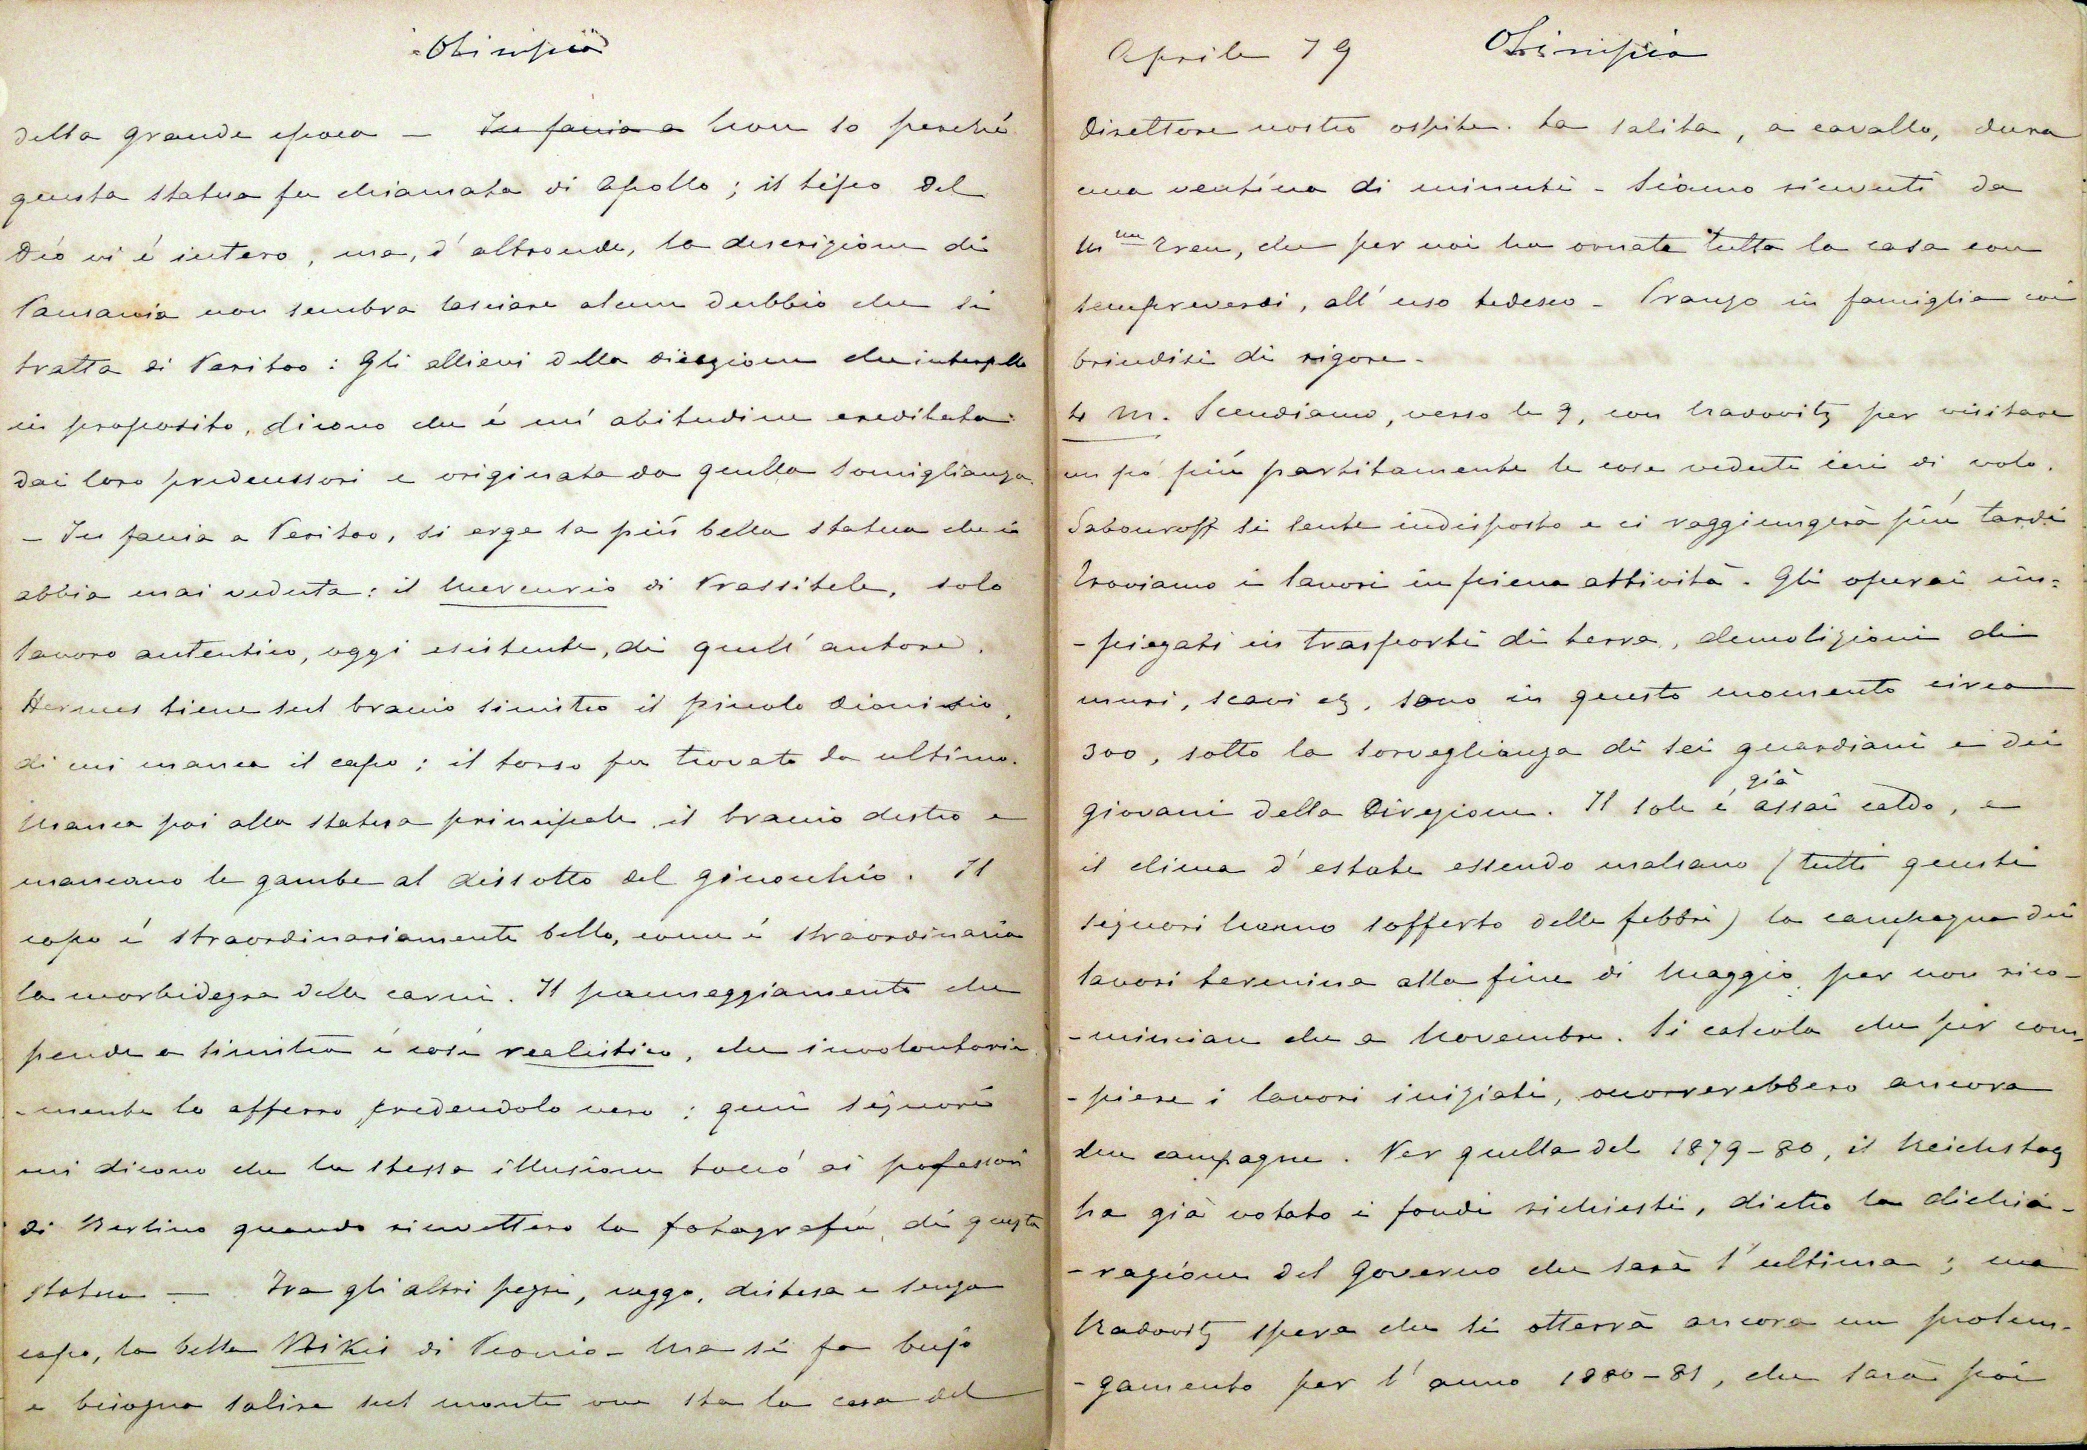 Olimpia
della grande epoca — In faccia a Non so perché
questa statua fu chiamata di Apollo; il tipo del
Dio vi é intero, ma, d'altronde, la descrizione di
Pausania non sembra lasciare alcun dubbio che si
tratta di Peritoo: Gli allievi della direzione che interpello
in proposito, dicono che é un'abitudine ereditata
dai loro predecessori e originata da quella somiglianza.
— In faccia a Peritoo, si erge la piú bella statua che io
abbia mai veduta: il Mercurio di Prassitele, solo
lavoro autentico, oggi esistente, di quell'autore.
Hermes tiene sul braccio sinistro il piccolo Dionisio,
di cui manca il capo; il torso fu trovato da ultimo.
Manca poi alla statua principale il braccio destro e
mancano le gambe al dissotto del ginocchio. Il
capo é straordinariamente bello, come é straordinaria
la morbidezza delle carni. Il panneggiamento che
pende a sinistra é cosí realistico, che involontaria
-mente lo afferro credendolo vero; quei signori
mi dicono che la stessa illusione toccó ai professori
di Berlino quando ricevettero la fotografia di questa
statua — Tra gli altri pezzi, veggo, distesa e senza
capo, la bella Nikis di Peonio — Ma si fa bujo
e bisogna salire sul monte ove sta la casa del
Aprile 79 Olimpia
Direttore nostro ospite. La salita, a cavallo, dura
una ventina di minuti — Siamo ricevuti da
Mme Treu, che per noi ha ornata tutta la casa con
sempreverdi, all'uso tedesco — Pranzo in famiglia coi
brindisi di rigore —
M. Scendiamo, verso le 9, con Radowitz per visitare
un pó piú partitamente le cose vedute ieri di volo.
Sabouroff si sente indisposto e ci raggiungerà piú tardi
Troviamo i lavori in piena attività. Gli operai im=
-piegati in trasporti di terra, demolizioni di
muri, scavi ez, sono in questo momento circa
300, sotto la sorveglianza di sei guardiani e dei
giovani della Direzione. Il sole é già assai caldo, e
il clima d'estate essendo malsano (tutti questi
signori hanno sofferto delle febbri) la campagna dei
lavori termina alla fine di Maggio per non rico-
-minciare che a Novembre. Si calcola che per com-
-piere i lavori iniziati, occorrerebbero ancora
due campagne. Per quella del 1879-80, il Reichstag
ha già votato i fondi richiesti, dietro la dichia-
-razione del Governo che sarà l'ultima; ma
Radowitz spera che si otterrà ancora un prolun-
-gamento per l'anno 1880-81, che sarà poi